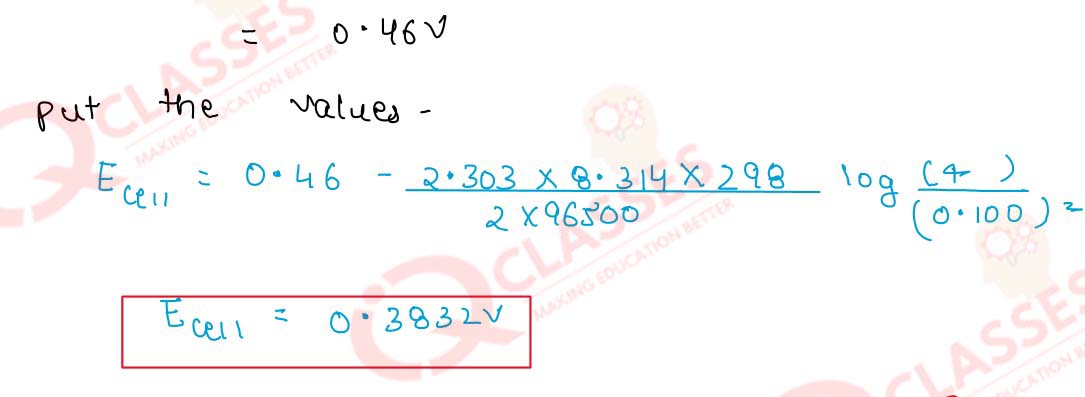 = 0.46V
put the values -
E cell = 0.46 - 2.303 X 8.314 X 298 / 2 X 96500 log (4 ) / (0.100)²
E cell = 0.3832V
CLASSES
MAKING EDUCATION BETTER
CLASSES
MAKING EDUCATION BETTER
CLASSES
EDUCATION BETTER